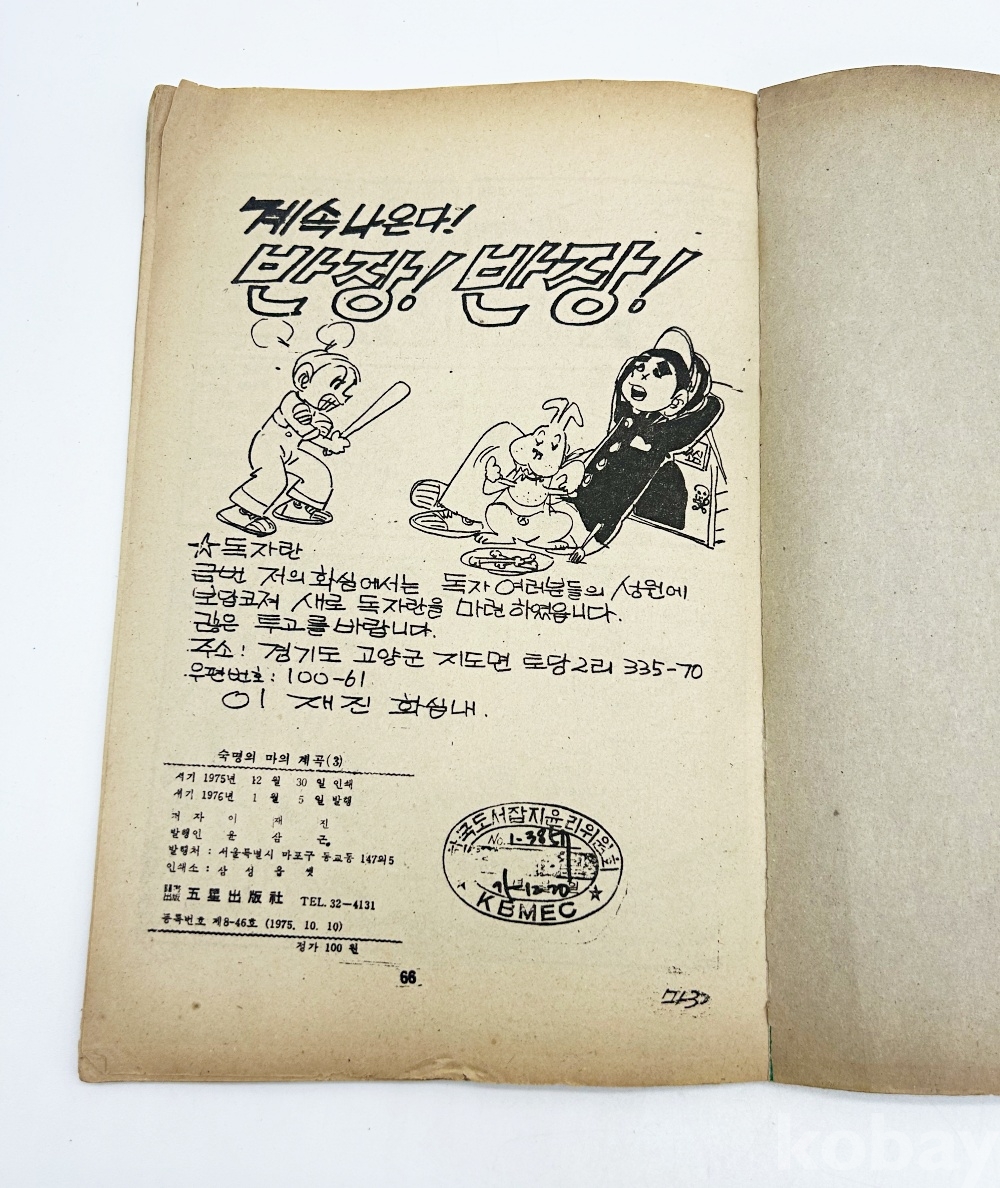 계속 나온다!
반장! 반장!
☆독자란
금번 저의 화실에서는 독자 여러분들의 성원에
보답코져 새로 독자란을 마련 하였읍니다.
많은 투고를 바랍니다.
주소! 경기도 고양군 지도면 토당2리 335-70
우편번호: 100-61
이 재진 화실내.
숙명의 마의 계곡(3)
서기 1975년 12월 30일 인쇄
서기 1976년 1월 5일 발행
저자 이재진
발행인 윤삼근
발행처 : 서울특별시 마포구 동교동 147의5
인쇄소 : 삼성옵셋
五星出版社 TEL. 32-4131
등록번호 제8-46호 (1975. 10. 10)
정가 100원
한국도서잡지윤리위원회
No. 1-385
KBMEC
66
kobay